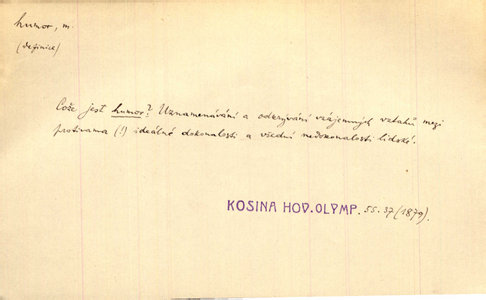 humor, m.
(definice)
Cože jest humor? Uznamenávání a odkrývání vzájemných vztahů mezi
protivama (!) ideálné dokonalosti a všední nedokonalosti lidské.
KOSINA HOV. OLYMP. 55. 37 (1879).